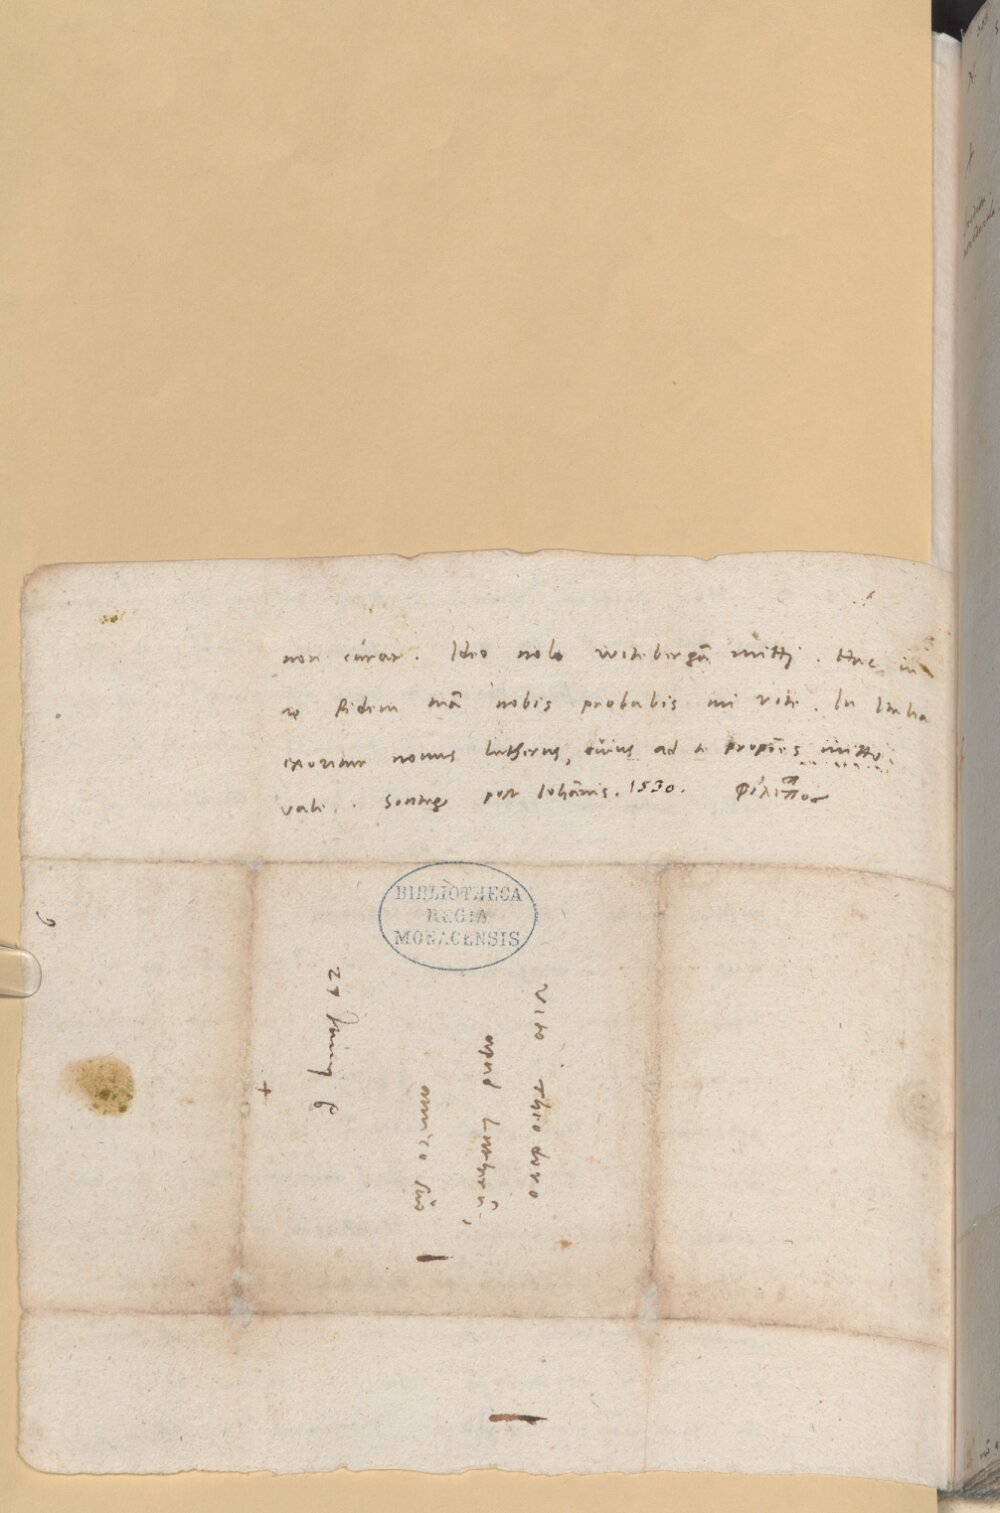 non curat. Ideo nolo witebergā mitti. Hac in
re fidem tuā nobis probabis mi vite. In Italia
exoritur novus lutherus, cuius ad te propōes mitto.
vale. Sontag post Iohānis. 1530. Φίλιππος
BIBLIOTHECA
REGIA
MONACENSIS
Vito Theodoro
apud Lutherū,
amico suo
27 Junij
+